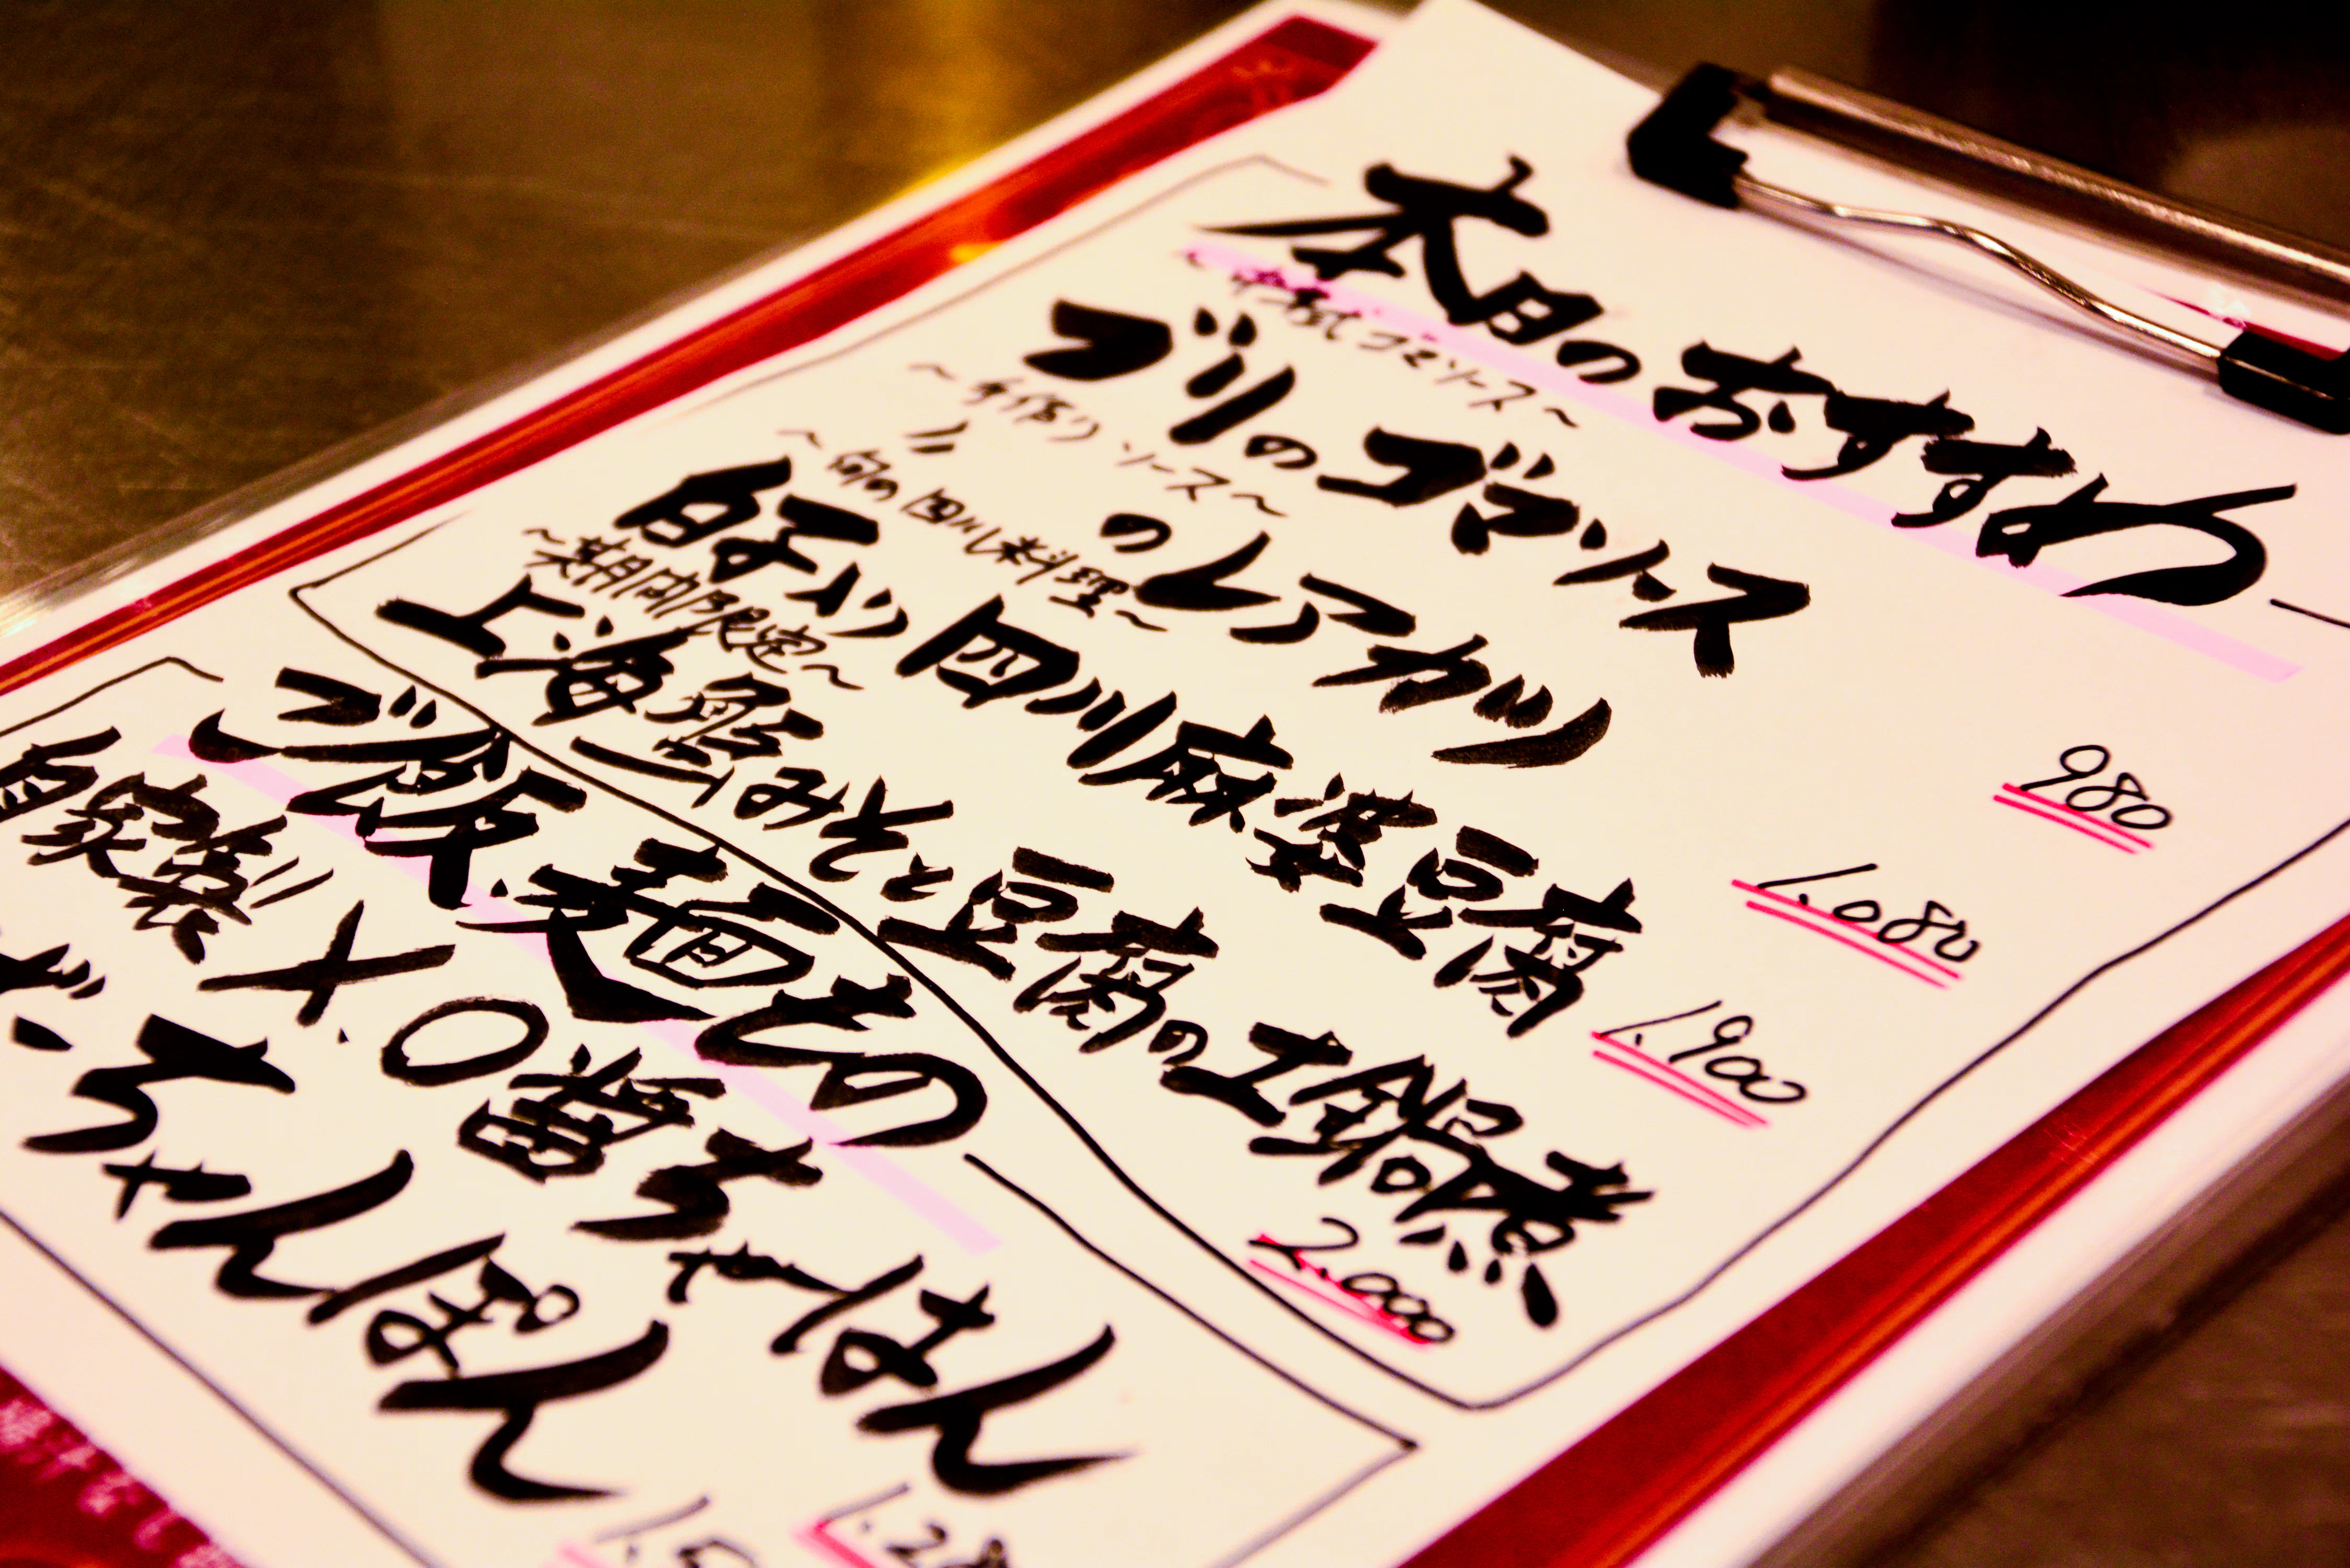 本日のおすすめ
~中華式ゴマソース~
ブリのゴマソース 980
~手作りソース~
〃 のレアカツ 1.080
~旬の四川料理~
白子入り四川麻婆豆腐 1.900
~期間内限定~
上海蟹みそと豆腐の土鍋煮 2.000
ご飯.麺もの
自家製X.O醤ちゃーはん
ちゃんぽん